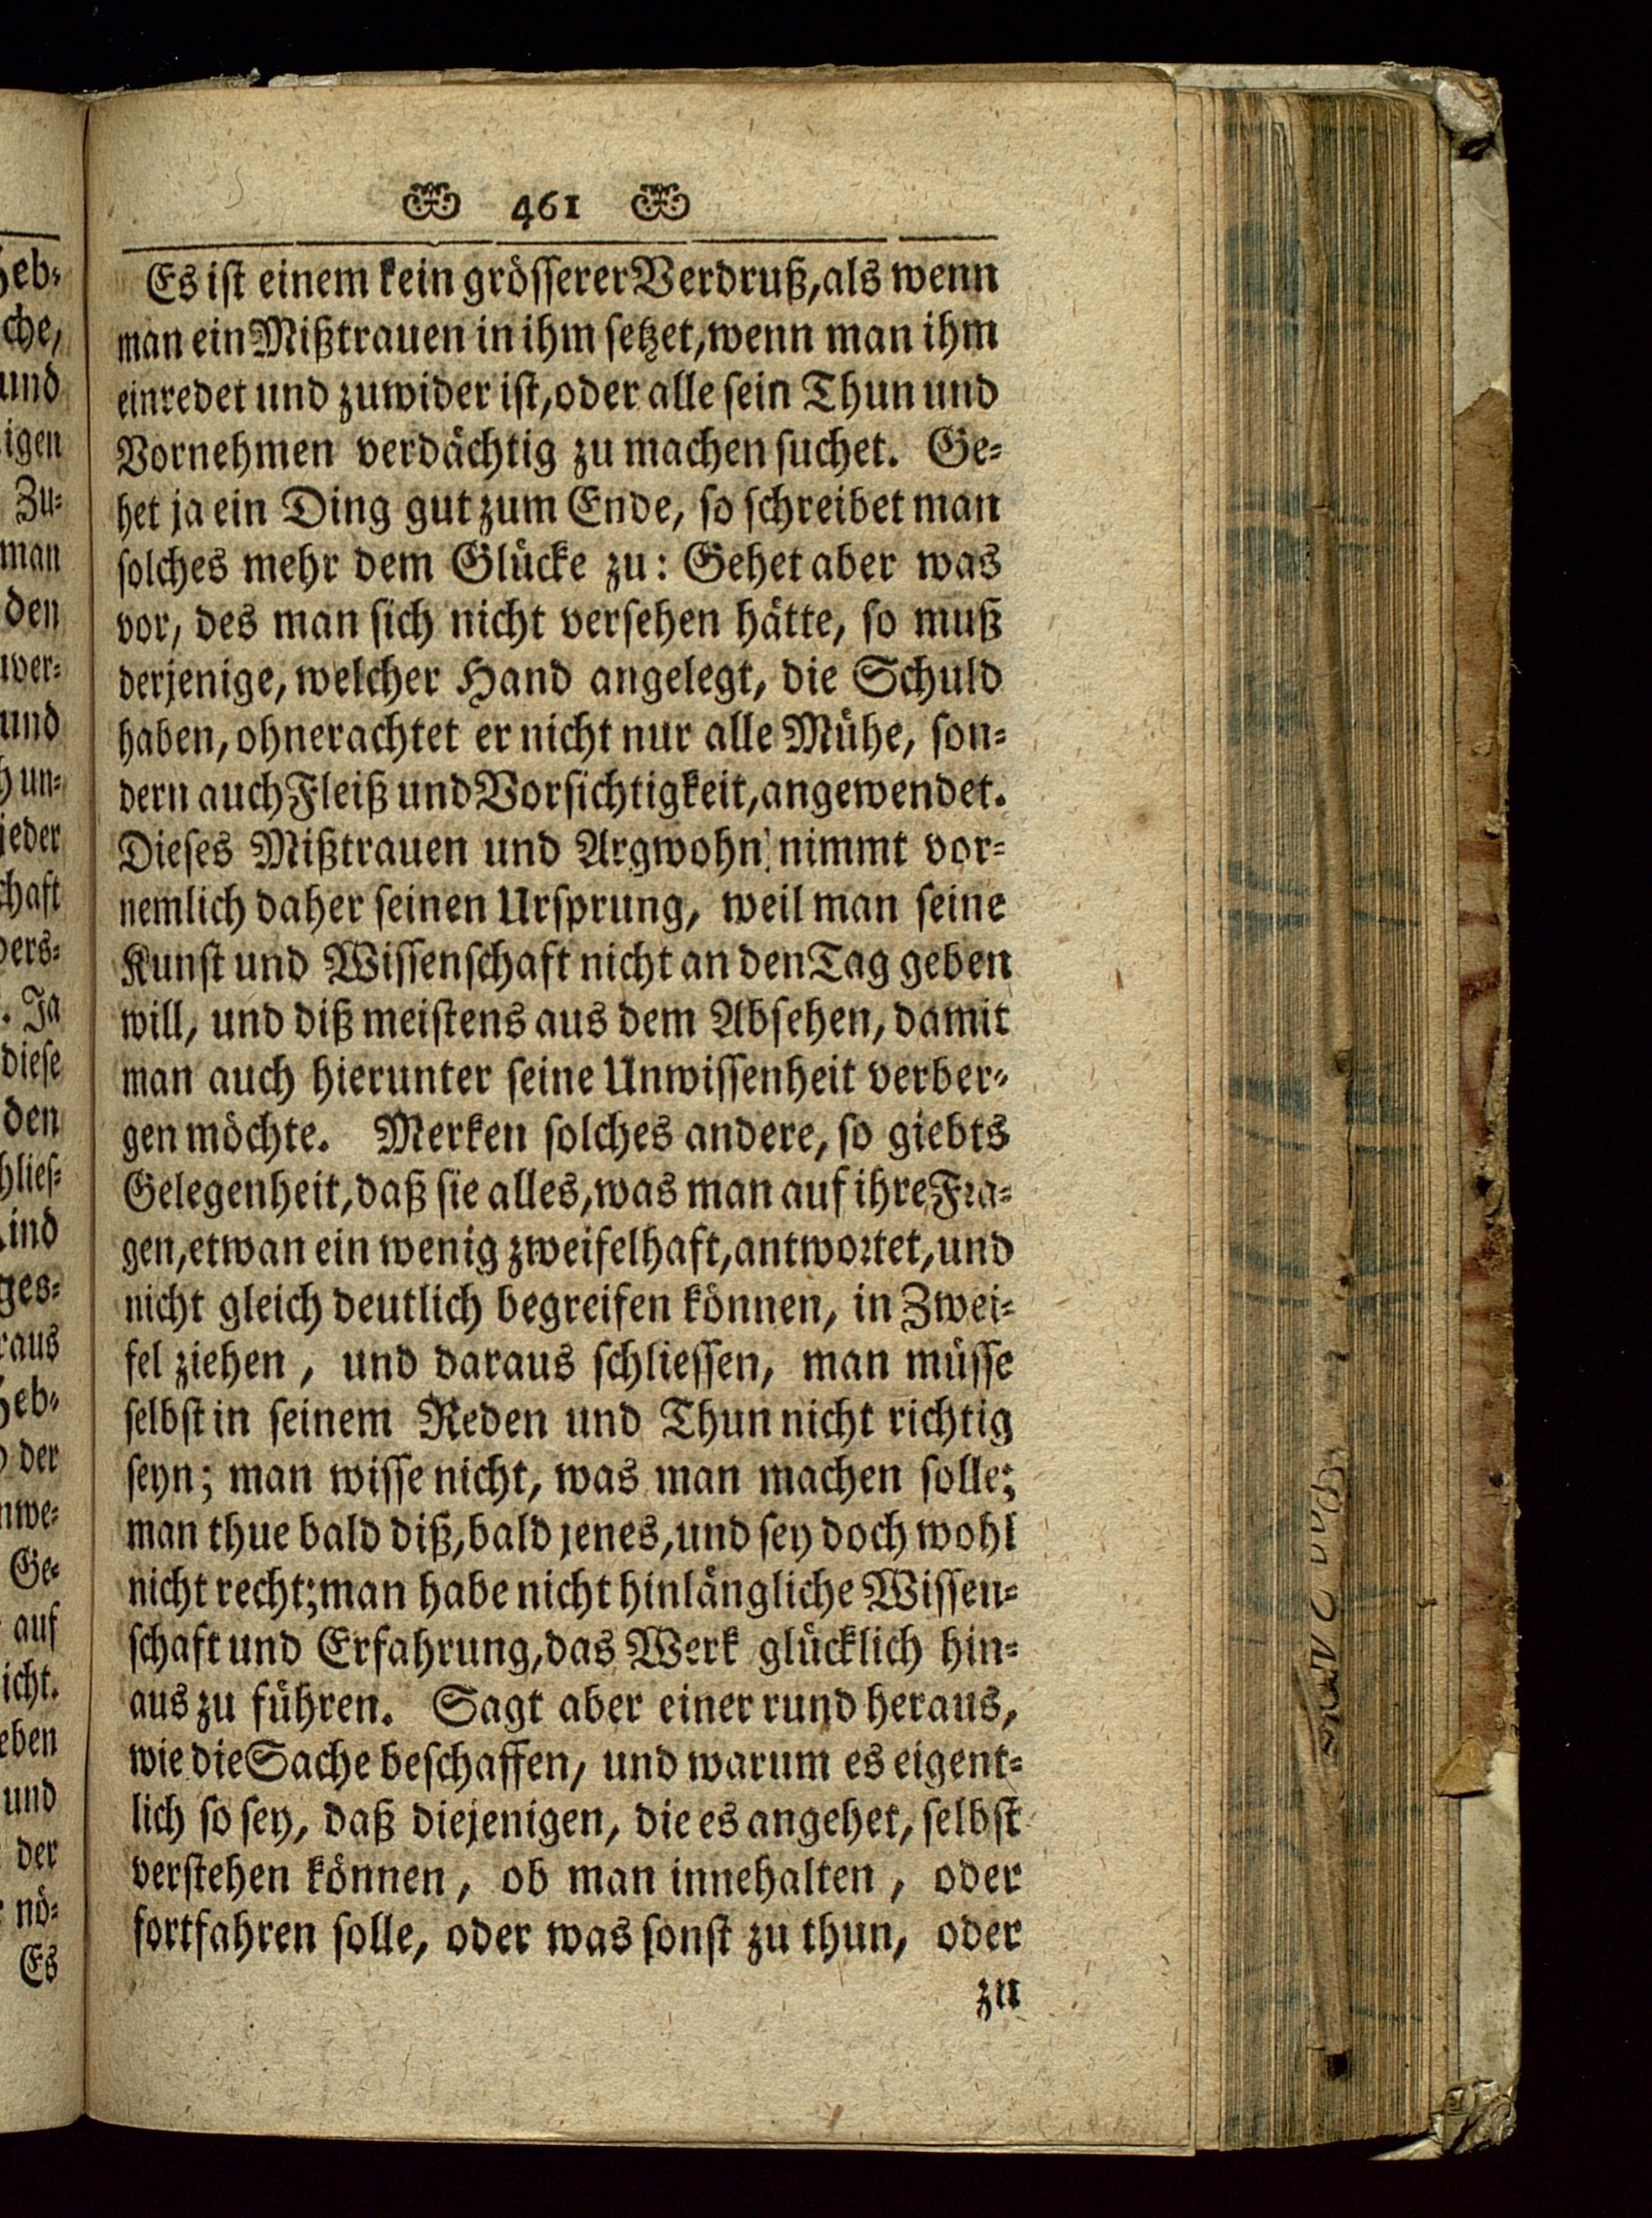 461
Es ist einem kein grösserer Verdruß, als wenn
man ein Mißtrauen in ihm setzet, wenn man ihm
einredet und zuwider ist, oder alle sein Thun und
Vornehmen verdächtig zu machen suchet. Ge-
het ja ein Ding gut zum Ende, so schreibet man
solches mehr dem Glücke zu: Gehet aber was
vor, des man sich nicht versehen hätte, so muß
derjenige, welcher Hand angelegt, die Schuld
haben, ohnerachtet er nicht nur alle Mühe, son-
dern auch Fleiß und Vorsichtigkeit, angewendet.
Dieses Mißtrauen und Argwohn nimmt vor-
nemlich daher seinen Ursprung, weil man seine
Kunst und Wissenschaft nicht an den Tag geben
will, und diß meistens aus dem Absehen, damit
man auch hierunter seine Unwissenheit verber-
gen möchte. Merken solches andere, so giebts
Gelegenheit, daß sie alles, was man auf ihre Fra-
gen, etwan ein wenig zweifelhaft, antwortet, und
nicht gleich deutlich begreifen können, in Zwei-
fel ziehen, und daraus schliessen, man müsse
selbst in seinem Reden und Thun nicht richtig
seyn; man wisse nicht, was man machen solle;
man thue bald diß, bald jenes, und sey doch wohl
nicht recht; man habe nicht hinlängliche Wissen-
schaft und Erfahrung, das Werk glücklich hin-
aus zu führen. Sagt aber einer rund heraus,
wie die Sache beschaffen, und warum es eigent-
lich so sey, daß diejenigen, die es angehet, selbst
verstehen können, ob man innehalten, oder
fortfahren solle, oder was sonst zu thun, oder
zu